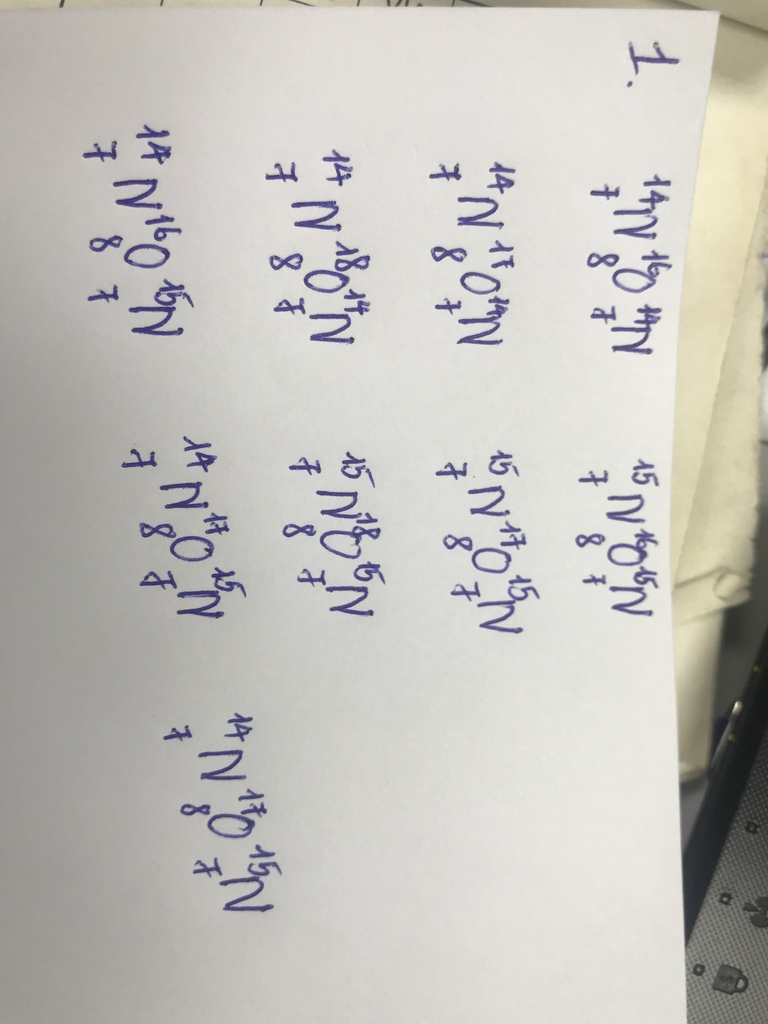 1. ¹⁴₇N¹⁶₈O¹⁴₇N ¹⁵₇N¹⁶₈O¹⁵₇N
¹⁴₇N¹⁷₈O¹⁴₇N ¹⁵₇N¹⁷₈O¹⁵₇N
¹⁴₇N¹⁸₈O¹⁴₇N ¹⁵₇N¹⁸₈O¹⁵₇N
¹⁴₇N¹⁶₈O¹⁵₇N ¹⁴₇N¹⁷₈O¹⁵₇N ¹⁴₇N¹⁷₈O¹⁵₇N